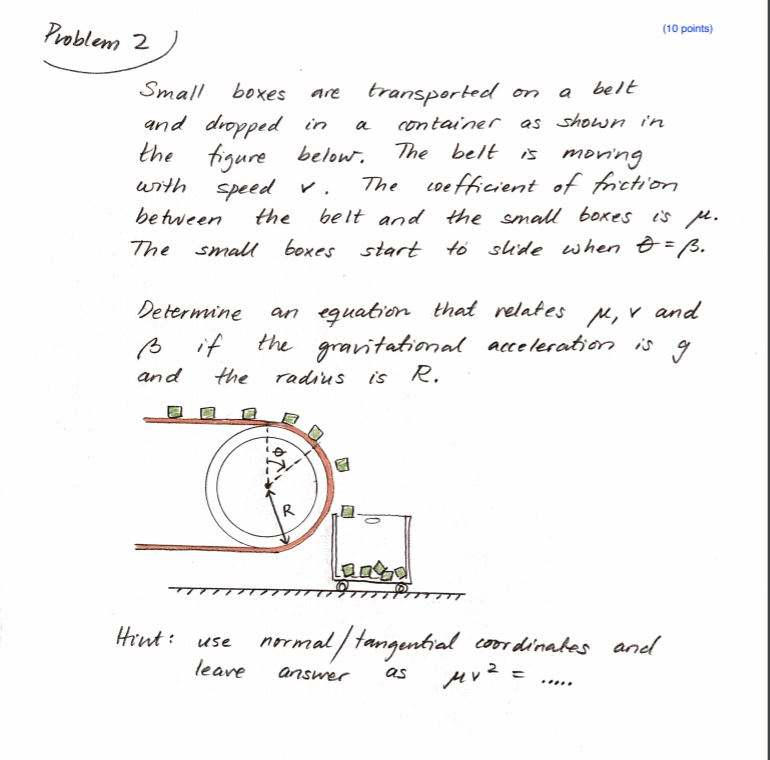 Problem 2
(10 points)
Small boxes are transported on a belt
and dropped in a container as shown in
the figure below. The belt is moving
with speed v. The coefficient of friction
between the belt and the small boxes is μ.
The small boxes start to slide when θ = β.
Determine an equation that relates μ, v and
β if the gravitational acceleration is g
and the radius is R.
θ
R
Hint: use normal/tangential coordinates and
leave answer as μv² = .....